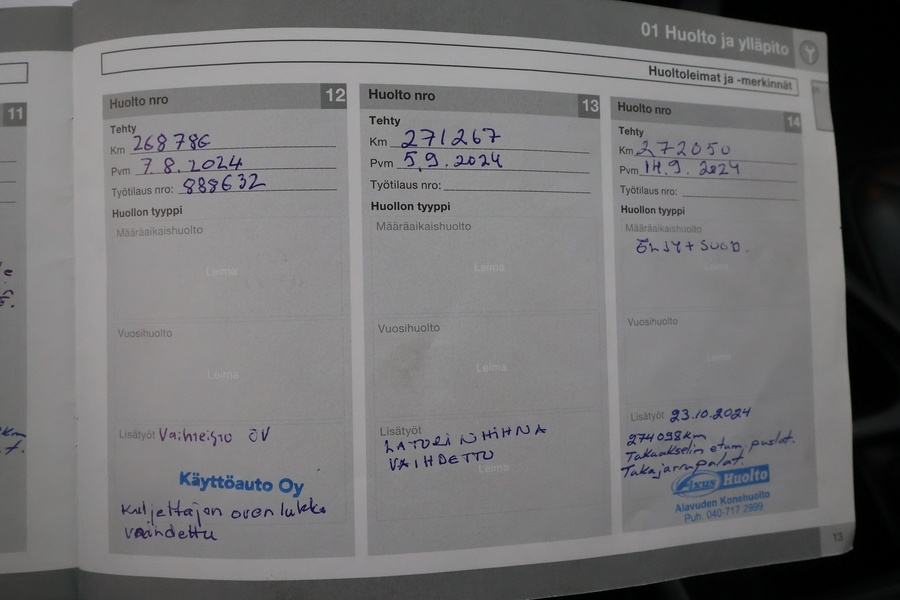 01 Huolto ja ylläpito
Huoltoleimat ja -merkinnät
11
Huolto nro 12
Tehty
Km 268786
Pvm 7.8.2024
Työtilaus nro: 888632
Huollon tyyppi
Määräaikaishuolto
Leima
Vuosihuolto
Leima
Lisätyöt Vaihteisto ÖV
Käyttöauto Oy
Kuljettajan oven lukko
vaihdettu
Huolto nro 13
Tehty
Km 271267
Pvm 5.9.2024
Työtilaus nro:
Huollon tyyppi
Määräaikaishuolto
Leima
Vuosihuolto
Leima
Lisätyöt
LATURIN HIHNA
VAIHDETTU
Leima
Huolto nro 14
Tehty
Km 272050
Pvm 14.9. 2024
Työtilaus nro:
Huollon tyyppi
Määräaikaishuolto
ÖLJY + SUOD.
Leima
Vuosihuolto
Leima
Lisätyöt 23.10.2024
274098km
Takaakselin etum. puslat.
Takajarrupalat.
Fixus Huolto
Alavuden Konehuolto
Puh. 040-717 2999
13